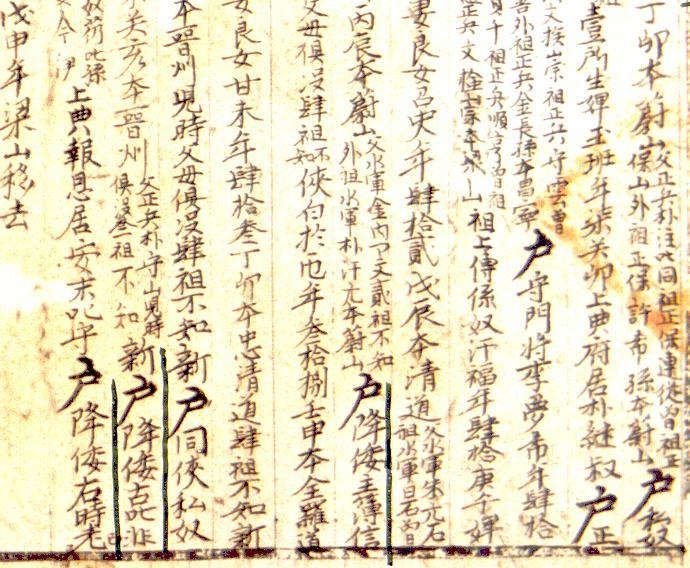 丁卯本蔚山父正兵朴注叱同祖正保連從曾祖正保山外祖正保許希孫本蔚山戶私奴
壹所生婢玉班年柒癸卯上典府居朴継叔戶正
祖正兵守雲曾外祖正兵金長孫本昌寧戶守門將李夢希年肆拾
祖正兵順曾祖正兵文本梁山祖上傳係奴汗福年肆拾庚午婢
妻良女召史年肆拾貳戊辰本清道父水軍朱元石祖水軍白石曾
丙辰本蔚山父水軍金內卩文貳祖不知外祖水軍朴汗元本蔚山戶降倭主簿信
父母俱沒肆祖不知俠白於屯年叁拾捌壬申本全羅道
妻良女甘未年肆拾叁丁卯本忠清道肆祖不知新
本晋州現時父母俱沒肆祖不知新戶同俠私奴
癸亥本晋州父正兵朴守山現時俱沒叁祖不知新戶降倭吉非
奴荷叱孫上典報恩居安末叱守戶降倭右時老
戊申年梁山移去